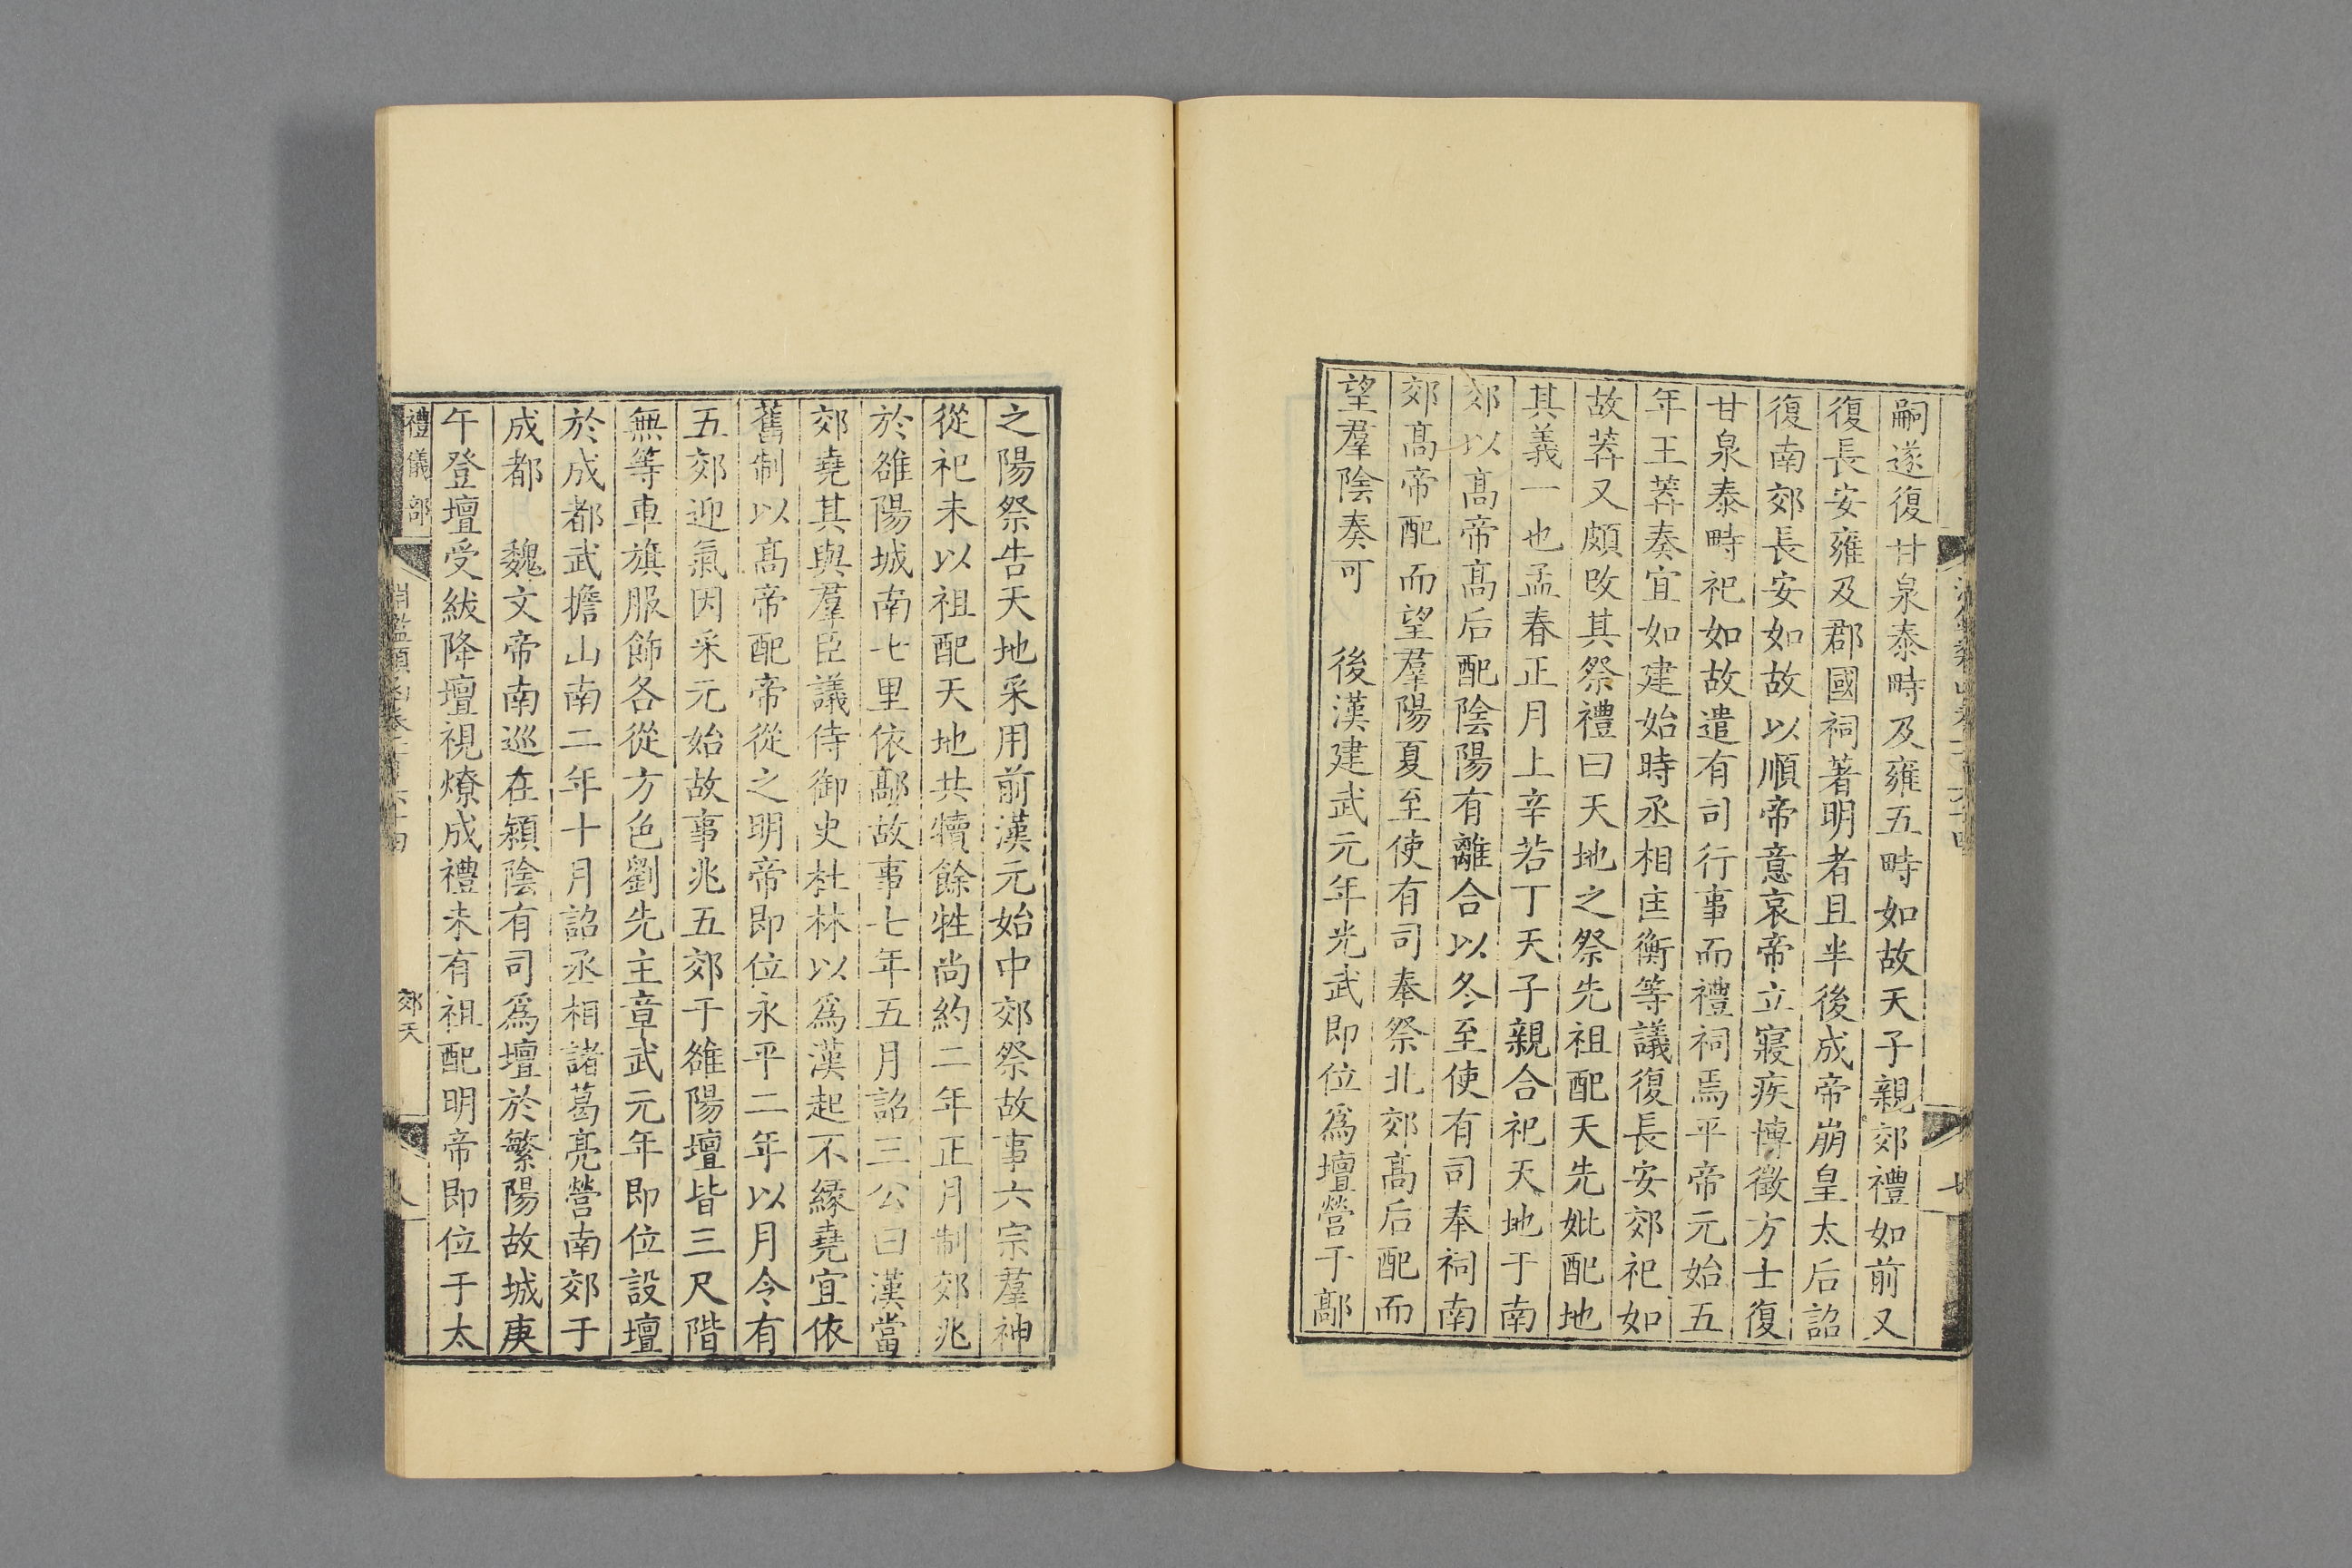 嗣遂復甘泉泰畤及雍五畤如故天子親郊禮如前又
復長安雍及郡國祠著明者且半後成帝崩皇太后詔
復南郊長安如故以順帝意哀帝立寢疾博徵方士復
甘泉泰畤祀如故遣有司行事而禮祠焉平帝元始五
年王莽奏宜如建始時丞相匡衡等議復長安郊祀如
故莽又頗改其祭禮曰天地之祭先祖配天先妣配地
其義一也孟春正月上辛若丁天子親合祀天地于南
郊以髙帝髙后配陰陽有離合以冬至使有司奉祠南
郊髙帝配而望羣陽夏至使有司奉祭北郊髙后配而
望羣陰奏可 後漢建武元年光武即位爲壇營于鄗
之陽祭告天地采用前漢元始中郊祭故事六宗羣神
從祀未以祖配天地共犢餘牲尚約二年正月制郊兆
於雒陽城南七里依鄗故事七年五月詔三公曰漢當
郊堯其與羣臣議侍御史杜林以爲漢起不緣堯宜依
舊制以髙帝配帝從之明帝即位永平二年以月令有
五郊迎氣因采元始故事兆五郊于雒陽壇皆三尺階
無等車旗服飾各從方色劉先主章武元年即位設壇
於成都武擔山南二年十月詔丞相諸葛亮營南郊于
成都 魏文帝南巡在潁陰有司爲壇於繁陽故城庚
午登壇受紱降壇視燎成禮未有祖配明帝即位于太
禮儀部
郊天
八